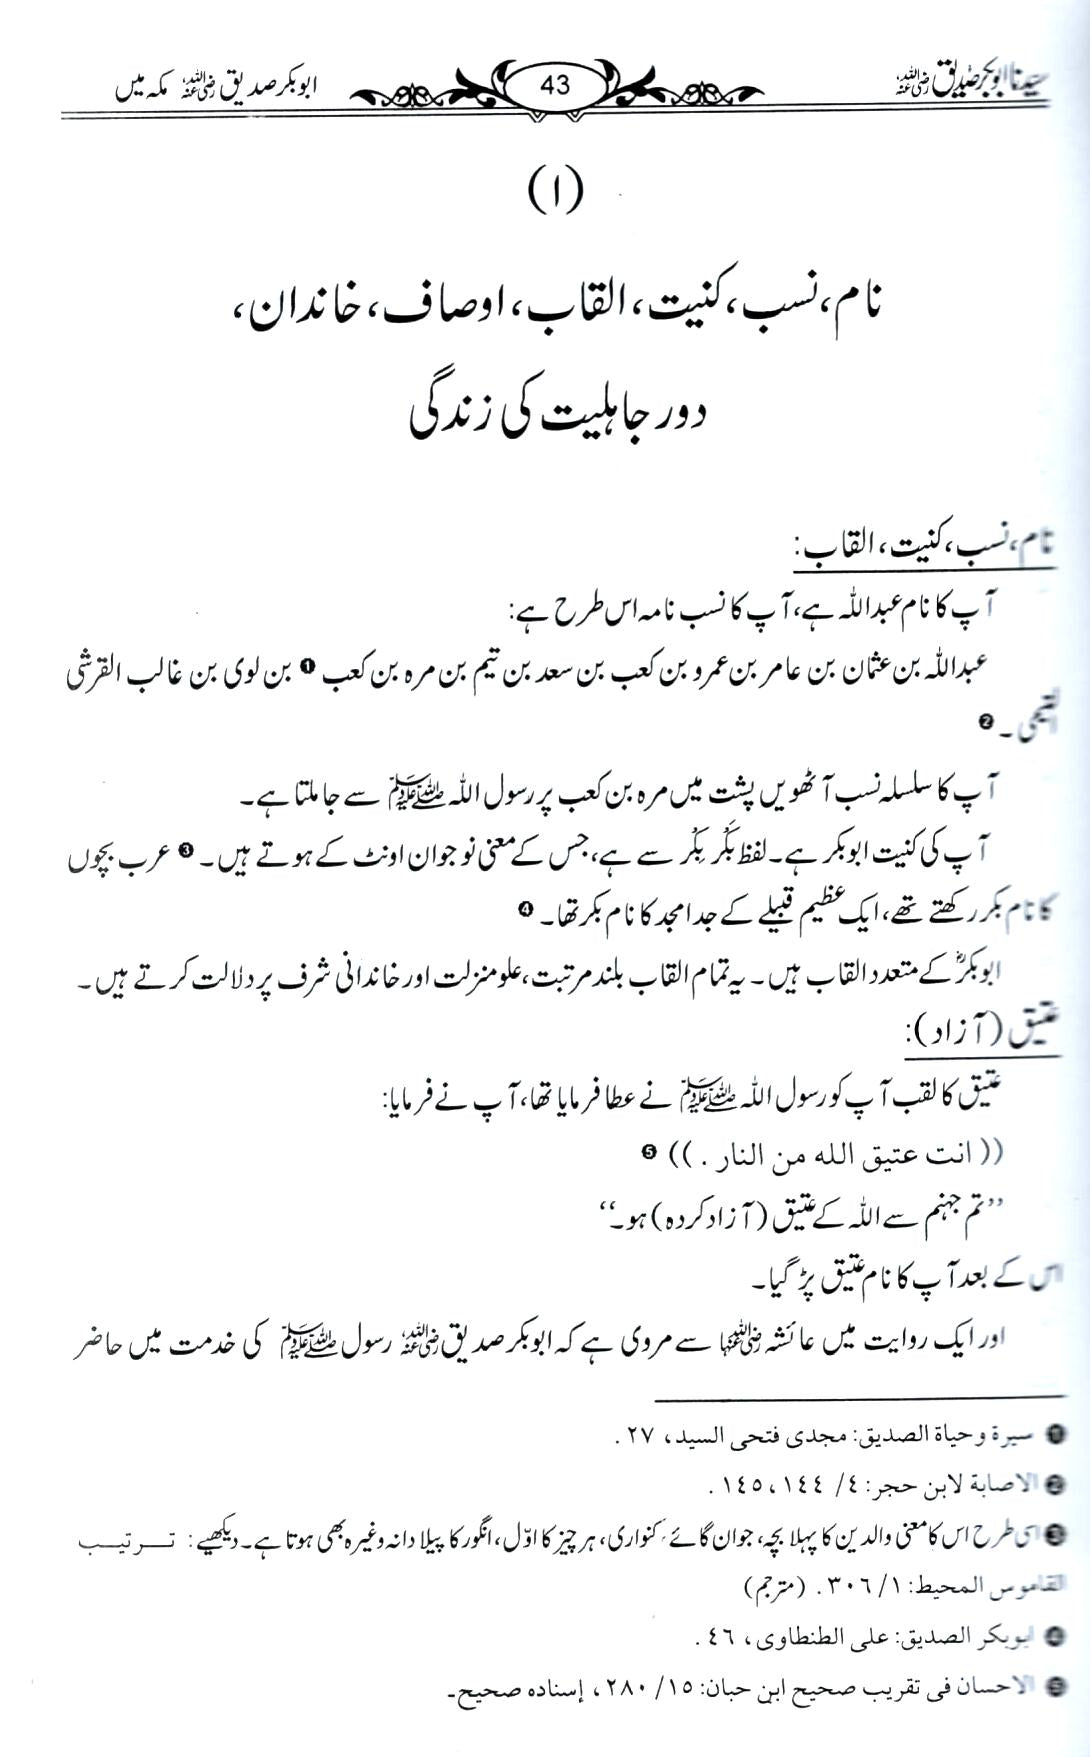 سیدنا ابوبکر صدیق رضی اللہ عنہ 43 ابوبکر صدیق رضی اللہ عنہ مکہ میں
(۱)
نام، نسب، کنیت، القاب، اوصاف، خاندان،
دور جاہلیت کی زندگی
نام، نسب، کنیت، القاب:
آپ کا نام عبداللہ ہے، آپ کا نسب نامہ اس طرح ہے:
عبداللہ بن عثمان بن عامر بن عمرو بن کعب بن سعد بن تیم بن مرہ بن کعب ❶ بن لوی بن غالب القرشی
التیمی۔ ❷
آپ کا سلسلہ نسب آٹھویں پشت میں مرہ بن کعب پر رسول اللہ ﷺ سے جا ملتا ہے۔
آپ کی کنیت ابوبکر ہے۔ لفظ بَکْر بِکْر سے ہے، جس کے معنی نوجوان اونٹ کے ہوتے ہیں۔ ❸ عرب بچوں
کا نام بکر رکھتے تھے، ایک عظیم قبیلے کے جد امجد کا نام بکر تھا۔ ❹
ابوبکرؓ کے متعدد القاب ہیں۔ یہ تمام القاب بلند مرتبت، علو منزلت اور خاندانی شرف پر دلالت کرتے ہیں۔
عتیق (آزاد):
عتیق کا لقب آپ کو رسول اللہ ﷺ نے عطا فرمایا تھا، آپ نے فرمایا:
((انت عتیق الله من النار.)) ❺
’’تم جہنم سے اللہ کے عتیق (آزاد کردہ) ہو۔‘‘
اس کے بعد آپ کا نام عتیق پڑ گیا۔
اور ایک روایت میں عائشہ رضی اللہ عنہا سے مروی ہے کہ ابوبکر صدیق رضی اللہ عنہ رسول ﷺ کی خدمت میں حاضر
❶ سیرة وحیاة الصدیق: مجدی فتحی السید، ٢٧.
❷ الاصابة لابن حجر: ٤/ ١٤٤، ١٤٥.
❸ اسی طرح اس کا معنی والدین کا پہلا بچہ، جوان گائے، کنواری، ہر چیز کا اوّل، انگور کا پیلا دانہ وغیرہ بھی ہوتا ہے۔ دیکھیے: ترتیب
القاموس المحیط: ١/ ٣٠٦. (مترجم)
❹ ابوبکر الصدیق: علی الطنطاوی، ٤٦.
❺ الاحسان فی تقریب صحیح ابن حبان: ١٥/ ٢٨٠، إسناده صحیح۔